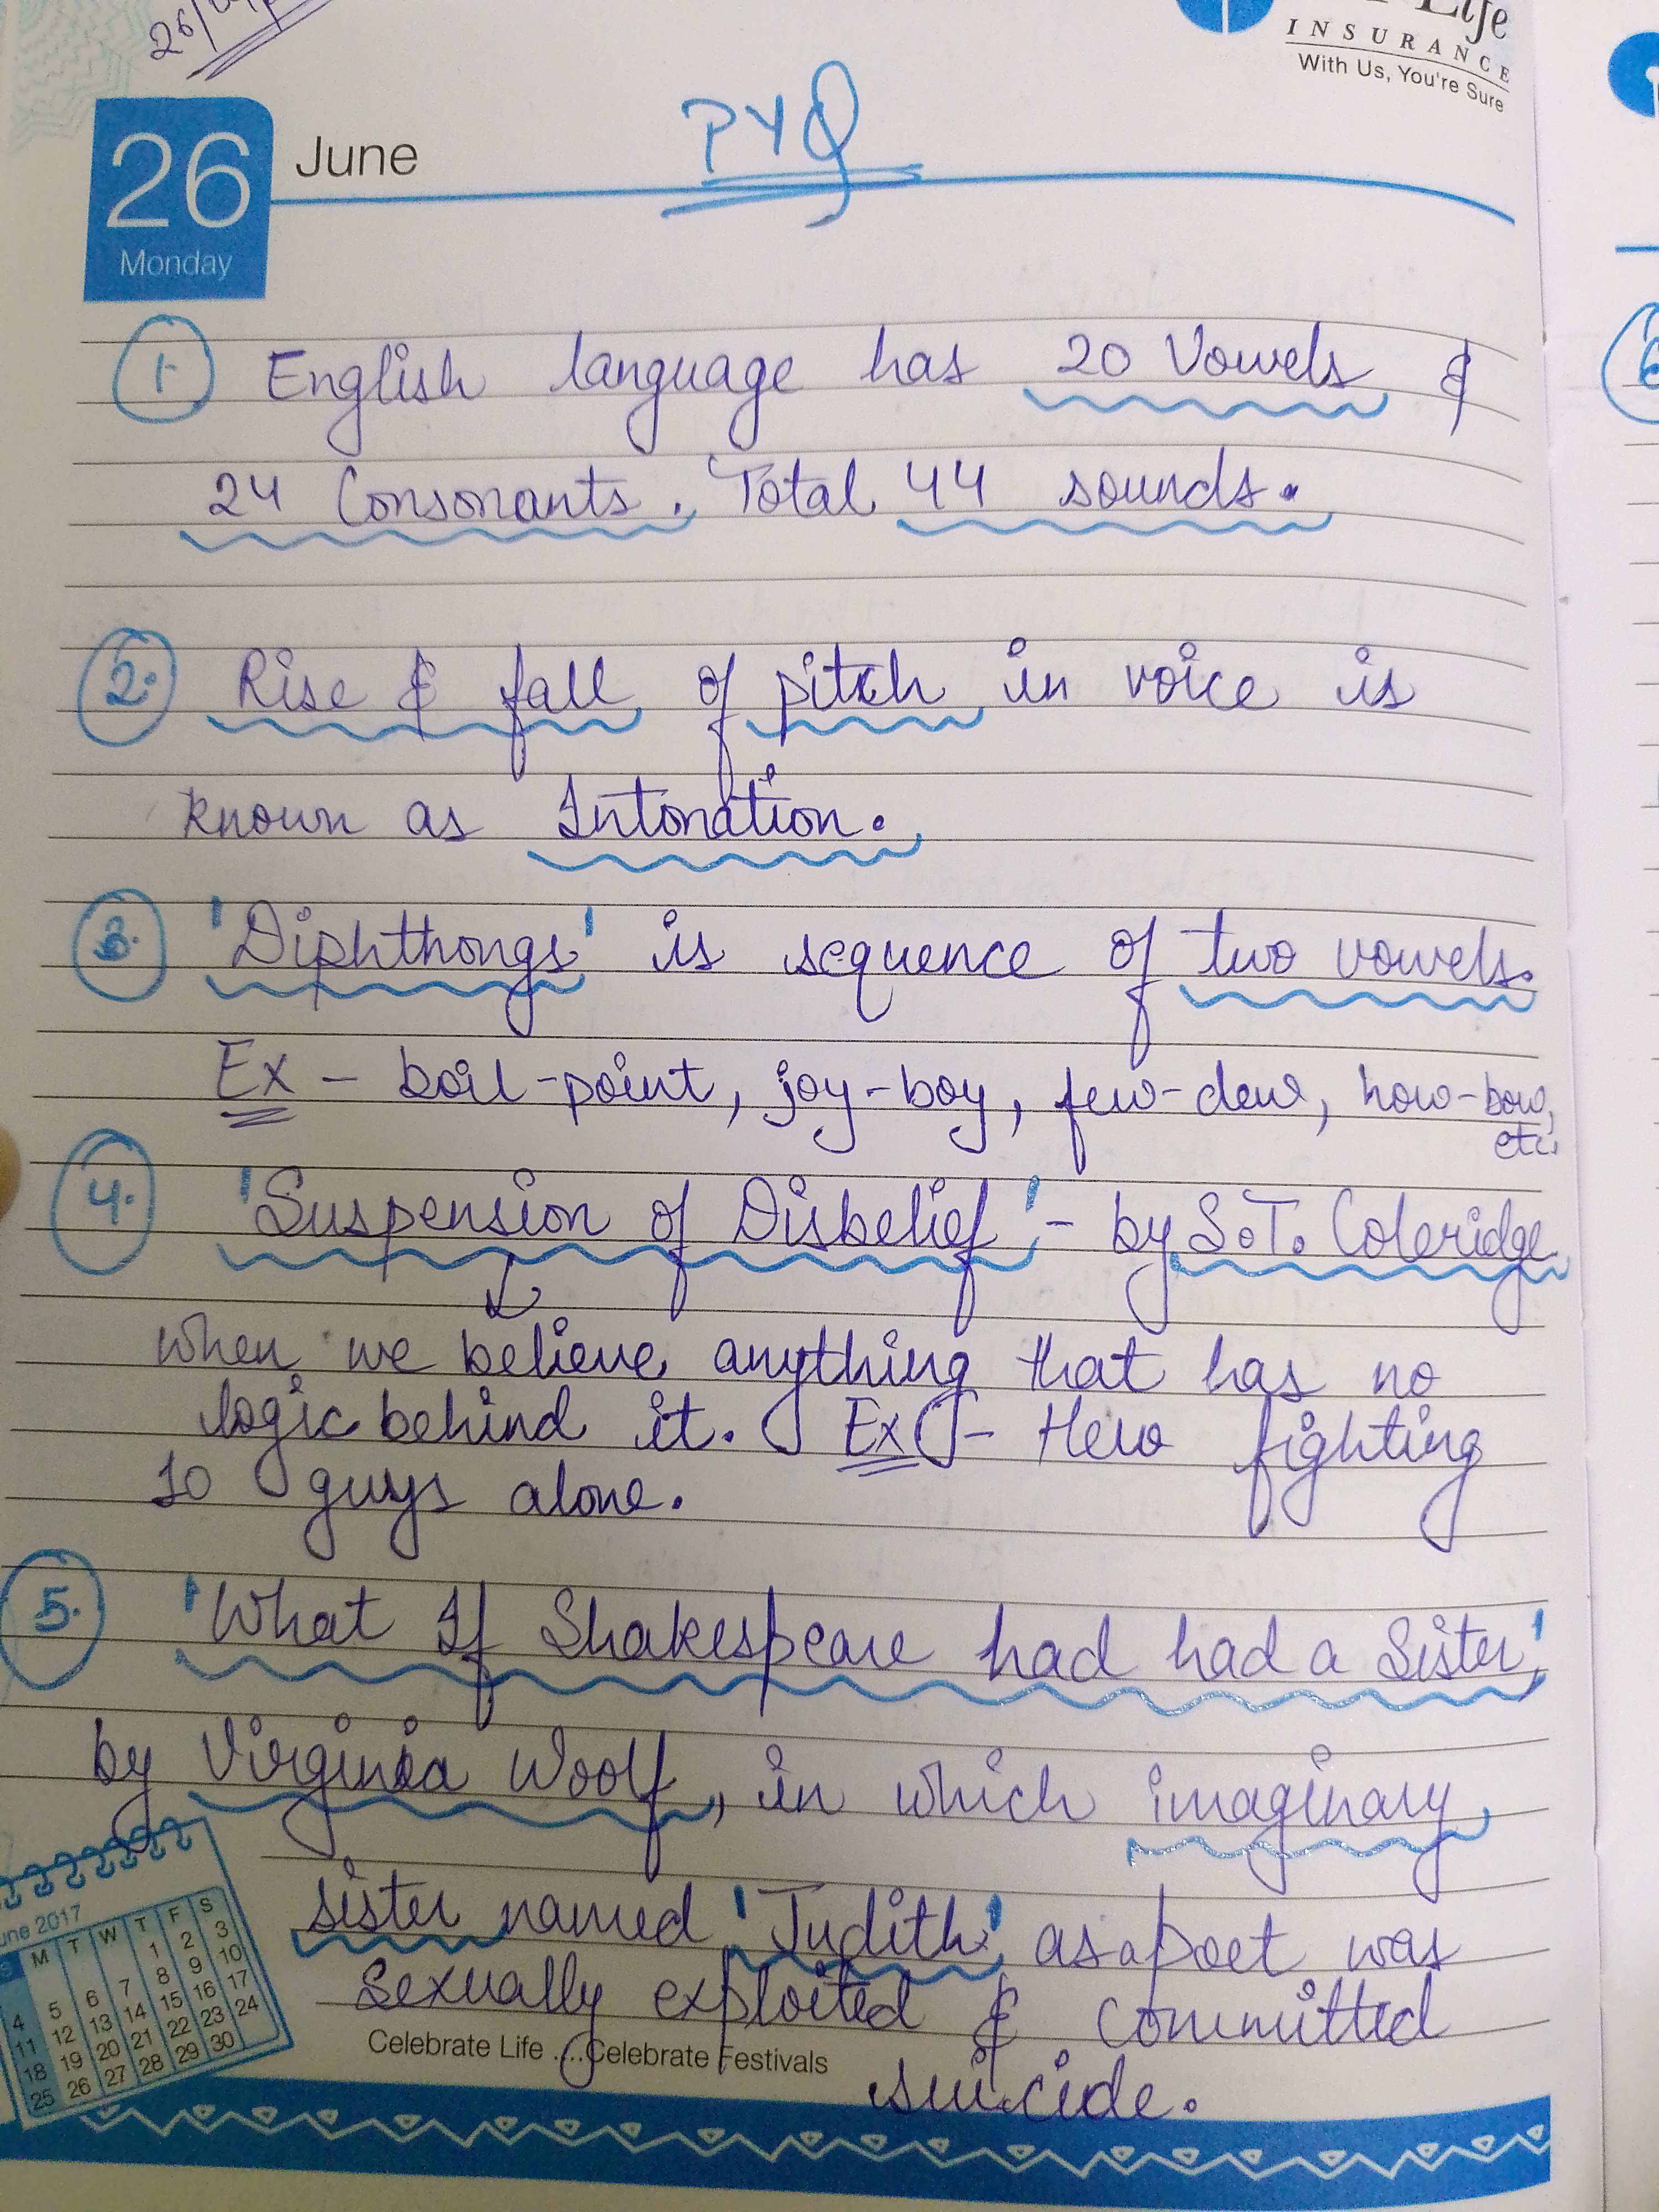 Life
INSURANCE
With Us, You're Sure
26
June
Monday
PYQ
1. English language has 20 Vowels &
24 Consonants. Total 44 sounds.
2. Rise & fall of pitch in voice is
known as Intonation.
3. 'Diphthongs' is sequence of two vowels.
Ex - boil-point, joy-boy, few-dew, how-bow,
etc.
4. 'Suspension of Disbelief' - by S.T. Coleridge
When we believe anything that has no
logic behind it. Ex - Hero fighting
10 guys alone.
5. 'What If Shakespeare had had a Sister,'
by Virginia Woolf, in which imaginary
sister named 'Judith' as a poet was
sexually exploited & committed
suicide.
June 2017
S M T W T F S
1 2 3
4 5 6 7 8 9 10
11 12 13 14 15 16 17
18 19 20 21 22 23 24
25 26 27 28 29 30
Celebrate Life ....Celebrate Festivals